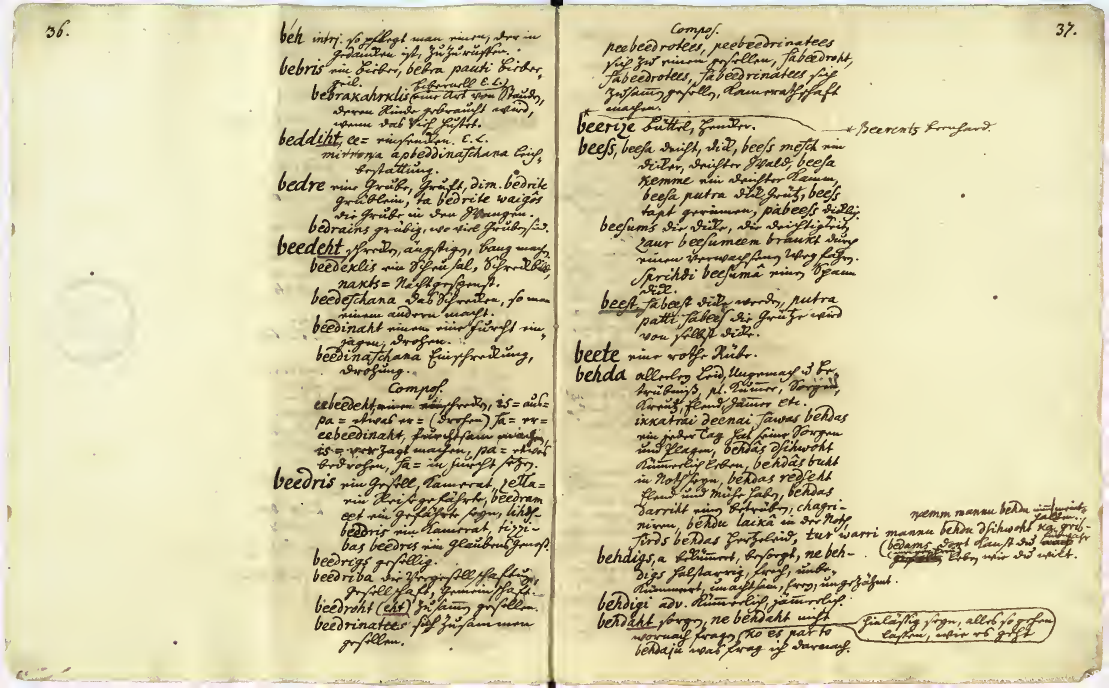 36.
beh interj. so pflegt man einen, der in
gedanken ist, zuzuruffen.
bebris ein Bieber, bebra pauti Bieber-
geil. Bibernell E.L.
bebrakahrklis (eine Art von Stauden,
deren Rinde gebraucht wird,
wenn das Vieh hustet.
beddiht, ee= einsenken. E.L.
mirrona apbeddinaschana Leich-
bestattung.
bedre eine Grube, Gruft, dim. bedrite
Grüblein, ta bedrite waigôs
die Grube in den Wangen.
bedrains grubig, wo viel Gruben sind.
beedeht schrecken, ängstigen, bang mach.
beedeklis ein Scheusal, Schreckbild,
nakts= Nachtgespenst.
beedeschana das Schrecken, so man
einem andern macht.
beedinaht einem eine Furcht ein-
jagen, drohen.
beedinaschana Einschreckung,
Drohung.
Compos.
eebeedeht, einen einschrecken, is= aus=
pa= etwas er= (drohen) sa= er=
eebeedinaht, furchtsam machen,
is= verzagt machen, pa= etwas
bedrohen, sa= in Furcht setzen.
beedris ein Gesell, Kamerat, zella=
ein Reisegefährte, beedram
eet ein Gefährte seyn,
beedris ein Kamerat, tizzi-
bas beedris ein Glaubensgenoß.
beedrigs gesellig.
beedriba die Vergesellschaftung,
Gesellschaft, Gemeinschaft.
beedroht (eht) zusamm gesellen.
beedrinatees sich zusammen
gesellen.
37.
Compos.
peebeedrotees, peebeedrinatees
sich zu einem gesellen, sabeedroht,
sabeedrotees, sabeedrinatees sich
zusamm gesellen, Kameradschaft
machen.
beerize Büttel, Henker.
* Beerents Bernhard.
beess, beesa dicht, dick, beess mesch ein
dicker, dichter Wald, beesa
kemme ein dichter Kamm,
beesa putra dick Grütz, beess
tapt gerinnen, pabeess dicklig.
beesums die Dicke, die Dichtigkeit,
zaur beesumeem braukt durch
einen verwachsenen Weg fahren.
Sprihdi beesumâ einen Spann
dick.
beest, sabeest dick werden, putra
patti sabees die Grütze wird
von selbst dick.
beete eine rothe Rübe.
behda allerley Leid, Ungemach u Be-
trübniß, pl. Kummer, Sorgen,
Kreutz, Elend, Jammer etc.
ikkatrai deenai sawas behdas
ein jeder Tag hat seine Sorgen
und Plagen, behdâs dsihwoht
kümmerlich leben, behdâs buht
in Noth seyn, behdas redseht
Elend und Mühe haben, behdas
darriht einen betrüben, chagri-
niren, behdu laikâ in der Noth,
sirds behdas Herzeleid, tur warri mannu behdu dsihwoht
nemm mannu behdu
behdams dort kanst du
leben wie du wilt.
behdigs, a bekümmert, besorgt, ne beh-
digs halsstarrig, frech, unbe-
kümmert, unachtsam, frey, ungezähmt.
behdigi adv. kümmerlich, jämmerlich.
behdaht sorgen, ne behdaht nicht
wornach fragen, ko es par to
behdaju was frag ich darnach.
hinlässig seyn, alles so gehen
lassen, wie es geht